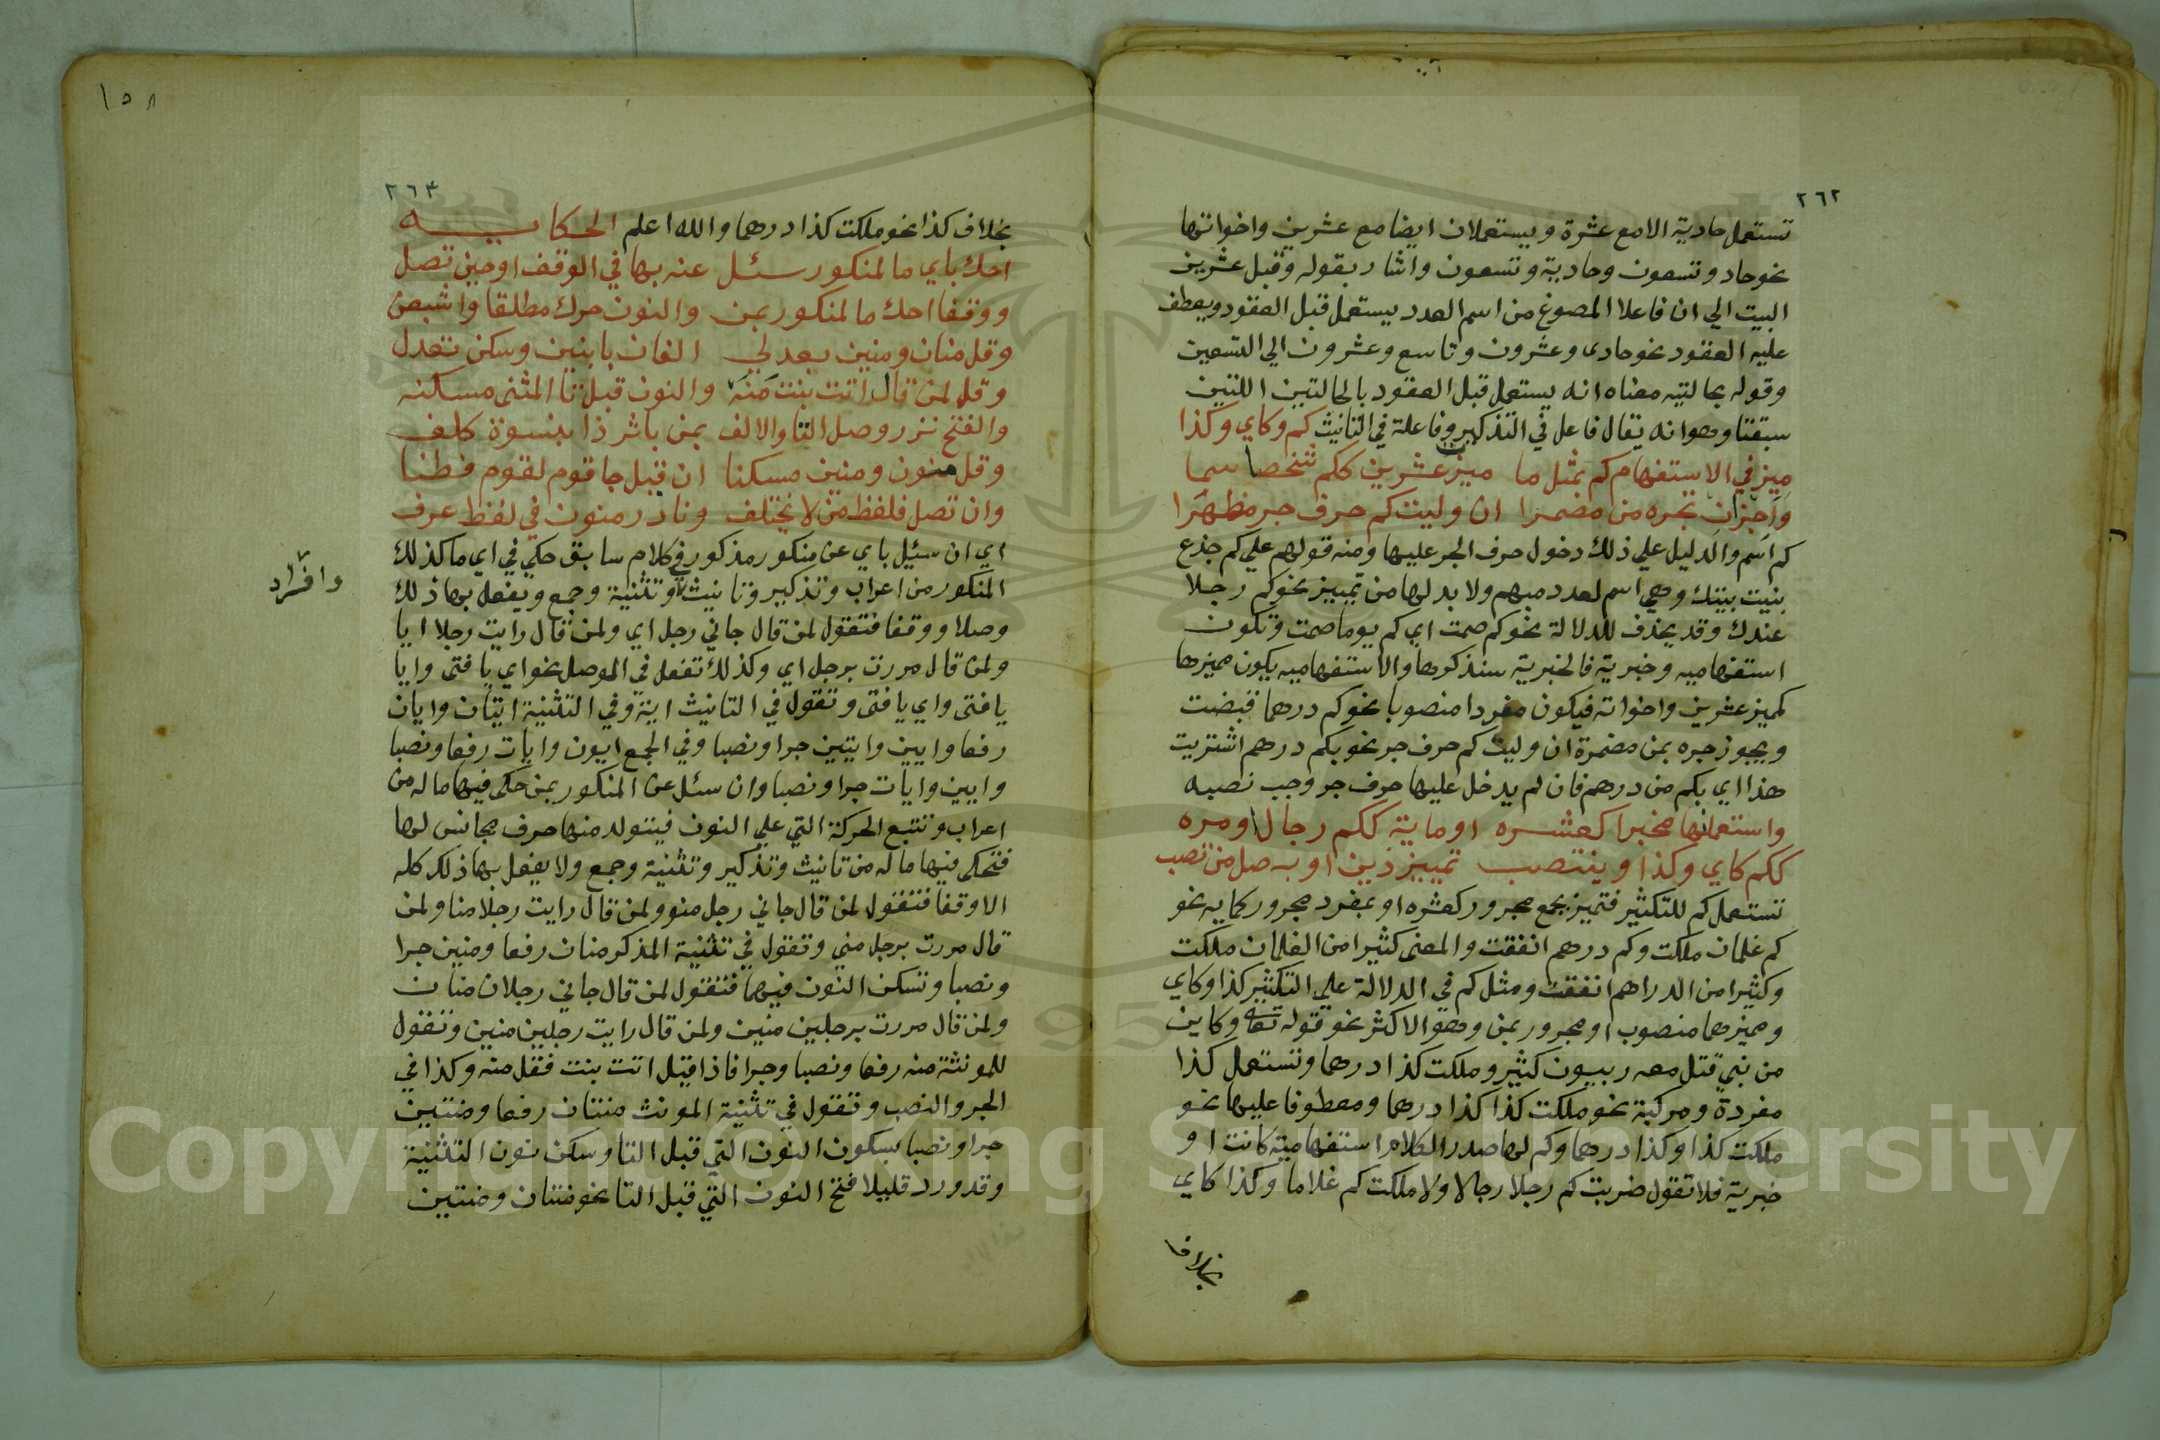 ٢٦٢
تستعمل حادية الا مع عشرة ويستعملان ايضا مع عشرين واخواتها
نحو حاد وتسعون وحادية وتسعون واشار بقوله وقبل عشرين
البيت الي ان فاعلا المصوغ من اسم العدد يستعمل قبل العقود ويعطف
عليه العقود نحو حادى وعشرون وتاسع وعشرون الي التسعين
وقوله بحالتيه معناه انه يستعمل قبل العقود بالحالتين اللتين
سبقتا وهو انه يقال فاعل في التذكير وفاعلة في التانيث كم وكاي وكذا
ميز في الاستفهام كم بمثل ما ميزت عشرين ككم شخصا سما
واجز ان تجره من مضمرا ان وليت كم حرف جر مظهرا
كم اسم والدليل علي ذلك دخول حرف الجر عليها ومنه قولهم علي كم جذع
بنيت بيتك وهي اسم لعدد مبهم ولا بد لها من تمييز نحو كم رجلا
عندك وقد يحذف للدلالة نحو كم صمت اي كم يوما صمت وتكون
استفهاميه وخبرية فالخبرية سنذكرها والاستفهاميه يكون مميزها
كمميز عشرين واخواته فيكون مفردا منصوبا نحو كم درهما قبضت
ويجوز جره بمن مضمرة ان وليت كم حرف جر نحو بكم درهم اشتريت
هذا اي بكم من درهم فان لم يدخل عليها حرف جر وجب نصبه
واستعملنها مخبرا كعشره اوماية ككم رجال او مره
ككم كاي وكذا وينتصب تمييز ذين او به صل من تصب
تستعمل كم للتكثير فتميز بجمع مجرور كعشره او بمفرد مجرور كمايه نحو
كم غلمان ملكت وكم درهم انفقت والمعنى كثيرا من الغلمان ملكت
وكثيرا من الدراهم انفقت ومثل كم في الدلالة علي التكثير كذا وكاي
ومميزهما منصوب او مجرور بمن وهو الاكثر نحو قوله تعه وكاين
من نبي قتل معه ربيون كثير وملكت كذا درهما وتستعمل كذا
مفردة ومركبة نحو ملكت كذا كذا درهما ومعطوفا عليها نحو
ملكت كذا وكذا درهما وكم لها صدر الكلام استفهامية كانت او
خبرية فلا تقول ضربت كم رجلا رجالا ولا ملكت كم غلاما وكذا كاي
١٥٨
٢٦٣
بخلاف كذا نحو ملكت كذا درهما والله اعلم الحكايه
احك باي ما لمنكور سئل عنه بها في الوقف او حين تصل
ووقفا احك ما لمنكور بمن والنون حرك مطلقا واشبعن
وقل منان ومنين بعد لي الفان بابنين وسكن تعدل
وقل لمن قال اتت بنت منه والنون قبل تا المثنى مسكنه
والفتح نزر وصل التا والالف بمن باثر ذا بنسوة كلف
وقل منون ومنين مسكنا ان قيل جا قوم لقوم فطنا
وان تصل فلفظ من لا يختلف ونادر منون في لفظ عرف
اي ان سئيل باي عن منكور مذكور في كلام سابق حكي في اي ما كذلك
المنكور من اعراب وتذكير وتانيث وتثنية وجمع ويفعل بها ذلك
وافراد
وصلا ووقفا فتقول لمن قال جاني رجل اي ولمن قال رايت رجلا ايا
ولمن قال مررت برجل اي وكذلك تفعل في الوصل نحو اي يا فتى وايا
يا فتى واي يا فتى وتقول في التانيث اية وفي التثنية ايتان وايان
رفعا وايين وايتين جرا ونصبا وفي الجمع ايون وايات رفعا ونصبا
وايين وايات جرا ونصبا وان سئل عن المنكور بمن حكى فيها ما له من
اعراب وتتبع الحركة التي علي النون فيتولد منها حرف مجانس لها
فتحكى فيها ما له من تانيث وتذكير وتثنية وجمع ولا يفعل بها ذلك كله
الا وقفا فتقول لمن قال جاني رجل منو ولمن قال رايت رجلا منا ولمن
قال مررت برجل مني وتقول في تثنية المذكر منان رفعا ومنين جرا
ونصبا وتسكن النون فيهما فتقول لمن قال جاني رجلان منان
ولمن قال مررت برجلين منين ولمن قال رايت رجلين منين وتقول
للمونثة منه رفعا ونصبا وجرا فاذا قيل اتت بنت فقل منه وكذا في
الجر والنصب وتقول في تثنية المونث منتان رفعا ومنتين
جرا ونصبا بسكون النون التي قبل التا وسكن نون التثنية
وقد ورد قليلا فتح النون التي قبل التا نحو منتان ومنتين
Copyright © King Saud University